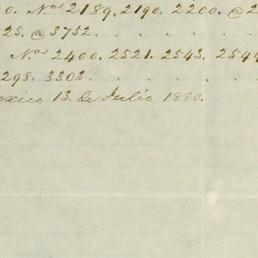 0. Nos 2189. 2190. 2200. @ 2
25. @ 3732. . . . . . .
Nos 2400. 2521. 2543. 2544
298. 3303. . . . . . .
exico 13. de Julio 1880.